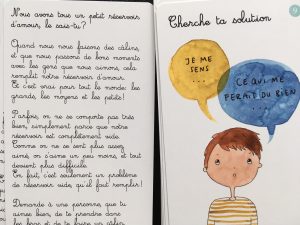 Nous avons tous un petit réservoir
d'amour, le sais-tu?
Quand nous nous faisons des câlins,
et que nous passons de bons moments
avec les gens que nous aimons, cela
remplit notre réservoir d'amour.
Et c'est vrai pour tout le monde: les
grands, les moyens et les petits!
Parfois, on ne se comporte pas très
bien, simplement parce que notre
réservoir est complètement vide.
Comme on ne se sent plus assez
aimé, on s'aime un peu moins, et tout
devient plus difficile.
En fait, c'est seulement un problème
de réservoir vide, qu'il faut remplir!
Demande à une personne, que tu
aimes bien, de te prendre dans
les bras et de te faire un câlin
Cherche ta solution
9
JE ME
SENS ...
CE QUI ME
FERAIT DU BIEN
...